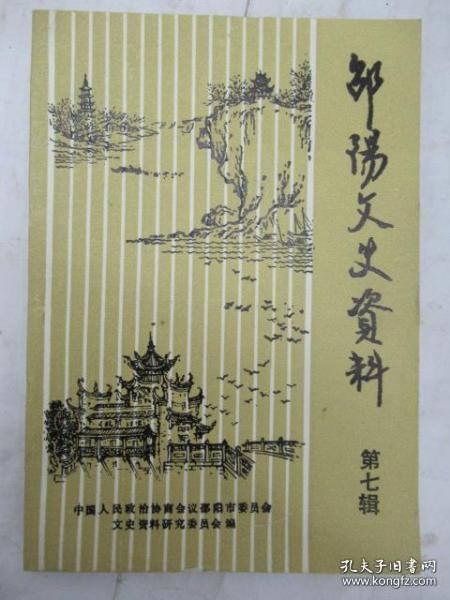 邵陽文史資料
第七辑
中国人民政治协商会议邵阳市委员会
文史资料研究委员会编
孔夫子旧书网
www.kongfz.com